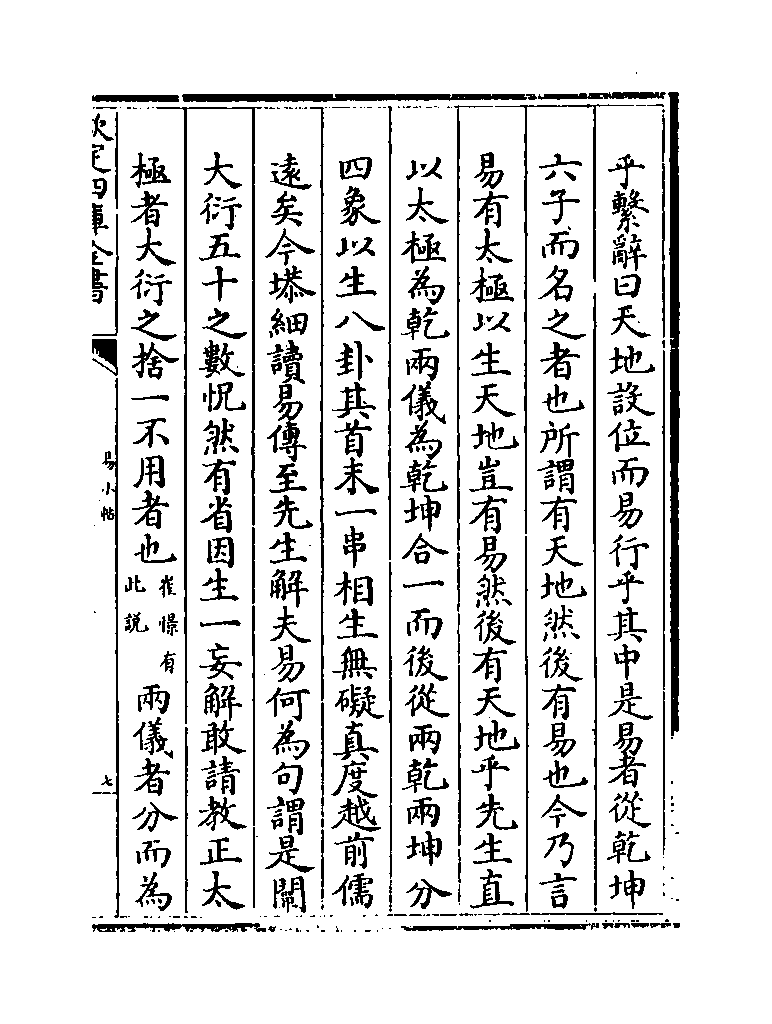 乎繫辭曰天地設位而易行乎其中是易者從乾坤
六子而名之者也所謂有天地然後有易也今乃言
易有太極以生天地豈有易然後有天地乎先生直
以太極為乾兩儀為乾坤合一而後從兩乾兩坤分
四象以生八卦其首末一串相生無礙真度越前儒
遠矣今塨細讀易傳至先生解夫易何為句謂是闡
大衍五十之數怳然有省因生一妄解敢請教正太
極者大衍之捨一不用者也崔憬有此説兩儀者分而為
欽定四庫全書
易小帖
七